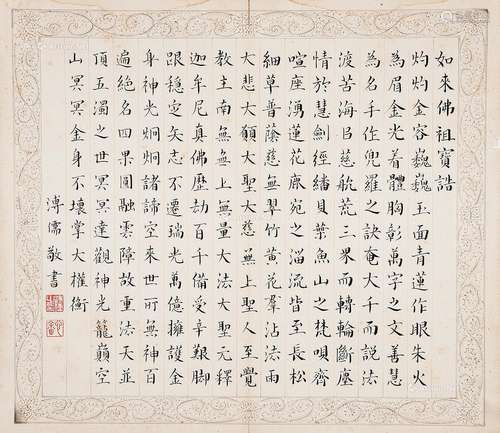 如來佛祖寶誥
灼灼金容巍巍玉面青蓮作眼朱火
為眉金光看體胸彰萬字之文善慧
為名手作兜羅之訣奄大千而說法
渡苦海以慈航荒三界而轉輪斷塵
情於慧劍經繙貝葉魚山之梵唄齊
喧座湧蓮花鹿宛之淄流皆至長松
細草普蔭慈無翠竹黃花羣沾法雨
大悲大願大聖大慈無上聖人至覺
教主南無無上無量大法大聖元釋
迦牟尼真佛歷劫百千備受辛艱腳
跟穩定矢志不遷瑞光萬億擁護金
身神光炯炯諸諦空來世所無神百
遍絕名四果圓融雲障故重法天並
頂五濁之世冥冥達觀神光籠巔空
山冥冥金身不壞掌大權衡
溥儒敬書